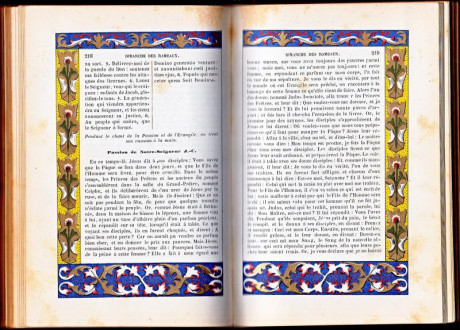 218
DIMANCHE DES RAMEAUX.
au sort. 5. Délivrez-moi de
la gueule du lion : soutenez
ma faiblesse contre les atta-
ques des licornes. 6. Louez
le Seigneur, vous qui le crai-
gnez : enfants de Jacob, glo-
rifiez-le tous.
qui viendra appartien-
dra au Seigneur, et les cieux
annonceront sa justice, 8.
Au peuple qui naîtra, que
le Seigneur a formé.
Domino generatio ventura :
et annuntiabunt cœli justi-
tiam ejus, 8. Populo qui nas-
cetur quem fecit Dominus.
Pendant le chant de la Passion et de l'Evangile, on tient
son rameau à la main.
Passion de Notre-Seigneur J.-C.
En ce temps-là Jésus dit à ses disciples : Vous savez
que la Pâque se fera dans deux jours, et que le Fils de
l'Homme sera livré pour être crucifié. Dans le même
temps, les Princes des Prêtres et les anciens du peuple
s'assemblèrent dans la salle du Grand-Prêtre, nommé
Caïphe, et ils délibérèrent de s'emparer de Jésus par la
ruse, et de le faire mourir. Mais ils disaient : Que ce ne
soit pas pendant la fête, de peur que quelque tumulte
n'éclate parmi le peuple. Or, comme Jésus était à Bétha-
nie, dans la maison de Simon le lépreux, une femme vint
à lui, ayant un vase d'albâtre plein d'un parfum précieux,
et le répandit sur sa tête, lorsqu'il était à table. Ce que
voyant ses disciples, ils en furent choqués, et dirent : A
quoi bon cette perte ? Car on aurait pu vendre ce parfum
bien cher, et en donner le prix aux pauvres. Mais Jésus,
connaissant leurs pensées, leur dit : Pourquoi faites-vous
de la peine à cette femme ? Elle a fait à mon égard une
DIMANCHE DES RAMEAUX.
219
bonne œuvre, car vous avez toujours des pauvres parmi
vous : mais moi, vous ne m'avez pas toujours : et cette
femme, en répandant ce parfum sur mon corps, l'a fait
en vue de ma sépulture. Je vous le dis en vérité, par tout
le monde où cet Evangile sera prêché, on racontera à la
louange de cette femme ce qu'elle vient de faire. Alors l'un
des douze, nommé Judas Iscariote, alla trouver les Princes
des Prêtres, et leur dit : Que voulez-vous me donner, et je
vous le livrerai ? Et ils lui promirent trente pièces d'ar-
gent : et il cherchait l'occasion de le livrer. Or, le
premier jour des azymes, les disciples s'approchèrent de
Jésus et lui dirent : Où voulez-vous que nous vous prépa-
rions ce qu'il faut pour manger la Pâque ? Jésus leur ré-
pondit : Allez à la ville, chez un tel, et dites-lui : Le maî-
tre vous envoie dire : Mon temps est proche, je fais la Pâque
chez vous avec mes disciples. Les disciples firent ce que
Jésus leur avait ordonné, et préparèrent la Pâque. Le soir,
il était à table avec ses douze disciples : Et comme ils man-
geaient, il leur dit : Je vous le dis en vérité, l'un de vous
me trahira. Ils en furent fort affligés, et chacun d'eux
commença à lui dire : Est-ce moi, Seigneur ? Et il leur ré-
pondit : Celui qui met la main au plat avec moi me trahira.
Pour le Fils de l'Homme, il s'en va selon ce qui est écrit de
lui : mais malheur à celui par qui le Fils de l'Homme sera
livré : il eût mieux valu pour cet homme qu'il ne fût ja-
mais né. Judas, celui qui le trahit, prenant la parole, lui
dit : Mon Maître, est-ce moi ? Il lui répondit : Vous l'avez
dit. Pendant qu'ils soupaient, Jésus prit du pain, le bénit,
le rompit, et le donna à ses disciples, en disant : Prenez
et mangez : Ceci est mon Corps. Ensuite, prenant le calice,
il rendit grâces, et le leur donna, en disant : Buvez-en
tous : car ceci est mon Sang, le Sang de la nouvelle al-
liance qui sera répandu pour plusieurs, afin que leurs pé-
chés leur soient remis. Or, je vous déclare que je ne boirai